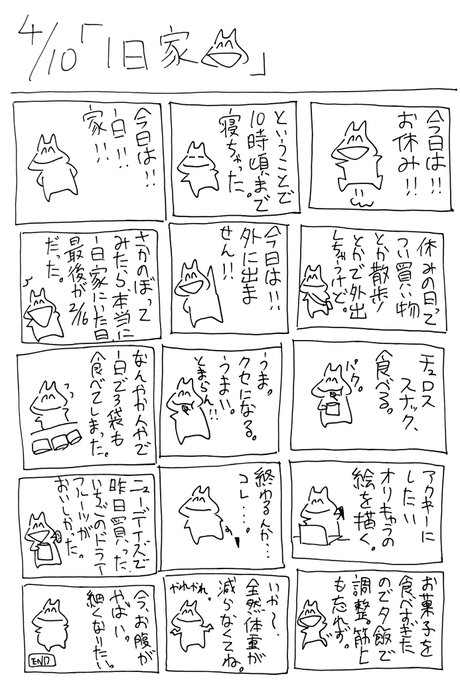 4/10「1日家」
今日は!!
お休み!!
ということで
10時頃まで
寝ちゃった。
今日は!!
1日!!
家!!
休みの日って
つい買い物
とか散歩!
とかで外出
しちゃうけど。
今日は!!
外に出ま
せん!!
さかのぼって
みたら、本当に
一日家にいた日
最後が2/6
だった。
チュロス
スナック、
食べる。
パク。
うま。
クセになる。
うまい。
とまらん!!
なんやかんやで
1日で3袋も
食べてしまった。
アクキーに
したい
オリキャラの
絵を描く。
終わるんか…
コレ…。
ニューデイズで
昨日買った
いちごのドライ
フルーツが
おいしかった。
お菓子を
食べすぎた
ので夕飯で
調整。筋ト
も忘れず。
いや〜、
全然体重が
減らなくてね。
やれやれ。
今、お腹が
やばい。
細くなりたい。
END